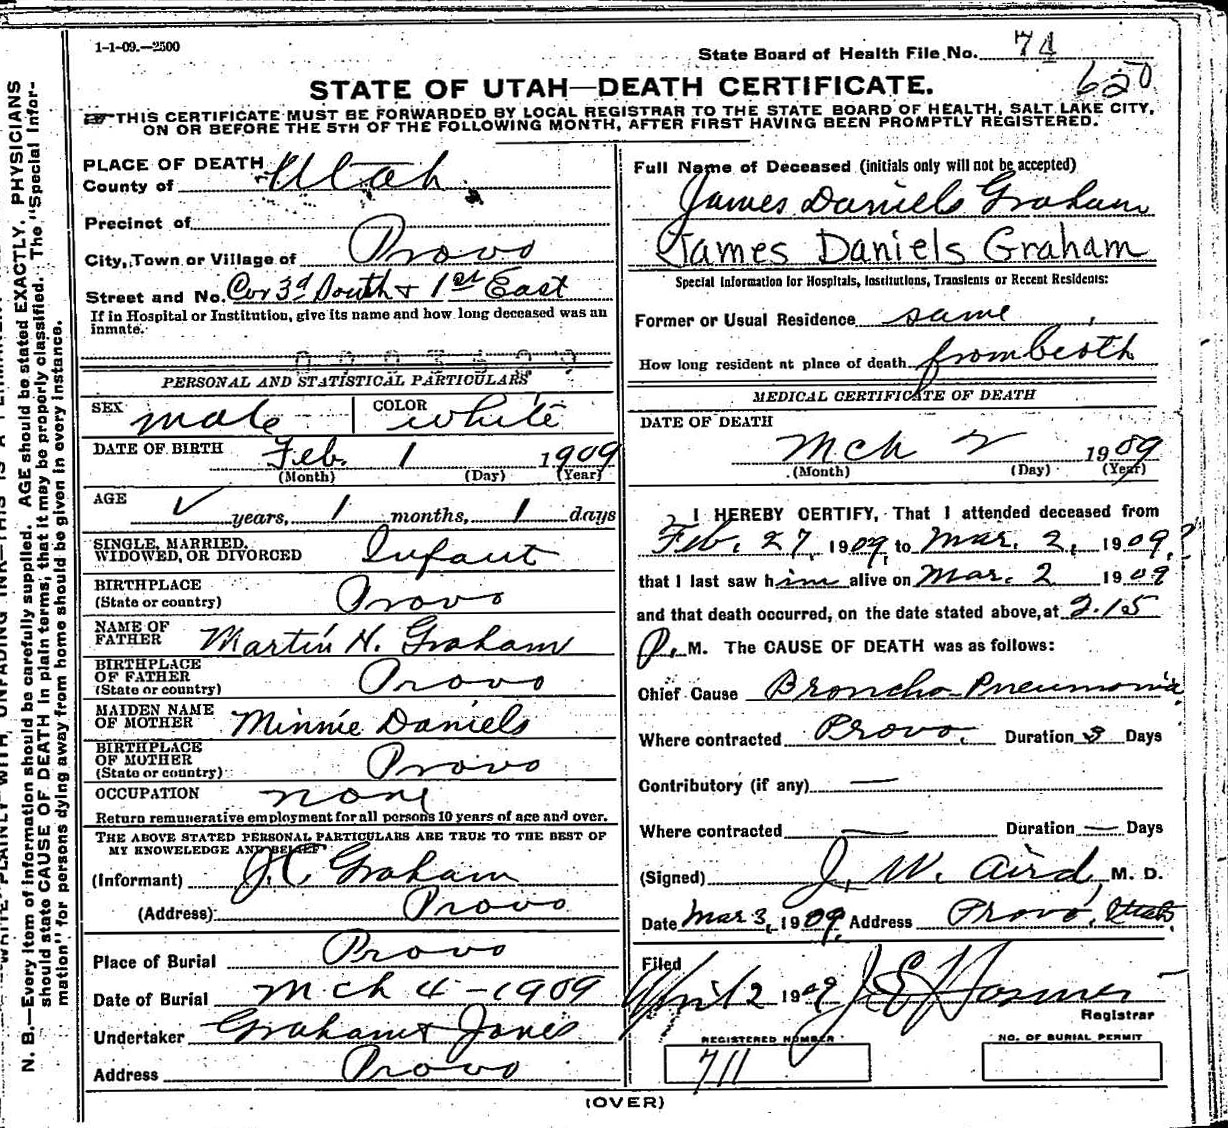 1-1-09.—2500
State Board of Health File No. 74
650
STATE OF UTAH—DEATH CERTIFICATE.
THIS CERTIFICATE MUST BE FORWARDED BY LOCAL REGISTRAR TO THE STATE BOARD OF HEALTH, SALT LAKE CITY,
ON OR BEFORE THE 5TH OF THE FOLLOWING MONTH, AFTER FIRST HAVING BEEN PROMPTLY REGISTERED.
PLACE OF DEATH
County of Utah
Precinct of
City, Town or Village of Provo
Street and No. Cor 3d South & 1st East
If in Hospital or Institution, give its name and how long deceased was an
inmate.
PERSONAL AND STATISTICAL PARTICULARS
SEX male COLOR white
DATE OF BIRTH Feb. 1 1909
(Month) (Day) (Year)
AGE years, 1 months, 1 days
SINGLE, MARRIED,
WIDOWED, OR DIVORCED Infant
BIRTHPLACE
(State or country) Provo
NAME OF
FATHER Martin N. Graham
BIRTHPLACE
OF FATHER
(State or country) Provo
MAIDEN NAME
OF MOTHER Minnie Daniels
BIRTHPLACE
OF MOTHER
(State or country) Provo
OCCUPATION none
Return remunerative employment for all persons 10 years of age and over.
THE ABOVE STATED PERSONAL PARTICULARS ARE TRUE TO THE BEST OF
MY KNOWELEDGE AND BELIEF
(Informant) J.C. Graham
(Address) Provo
Place of Burial Provo
Date of Burial Mch 4 - 1909
Undertaker Graham & Jones
Address Provo
Full Name of Deceased (initials only will not be accepted)
James Daniels Graham
James Daniels Graham
Special Information for Hospitals, Institutions, Transients or Recent Residents:
Former or Usual Residence same
How long resident at place of death from birth
MEDICAL CERTIFICATE OF DEATH
DATE OF DEATH
Mch 2 1909
(Month) (Day) (Year)
I HEREBY CERTIFY, That I attended deceased from
Feb. 27, 1909, to Mar. 2, 1909.?
that I last saw him alive on Mar. 2 1909
and that death occurred, on the date stated above, at 2.15
P. M. The CAUSE OF DEATH was as follows:
Chief Cause Broncho-Pneumonia
Where contracted Provo. Duration 3 Days
Contributory (if any) —
Where contracted — Duration — Days
(Signed) J. W. Aird, M. D.
Date Mar 3, 1909. Address Provo, Utah
Filed
April 2 1909 J E Hosmer
Registrar
REGISTERED NUMBER
711
NO. OF BURIAL PERMIT
(OVER)
N. B.—Every item of information should be carefully supplied. AGE should be stated EXACTLY. PHYSICIANS
should state CAUSE OF DEATH in plain terms, that it may be properly classified. The "Special Infor-
mation" for persons dying away from home should be given in every instance.